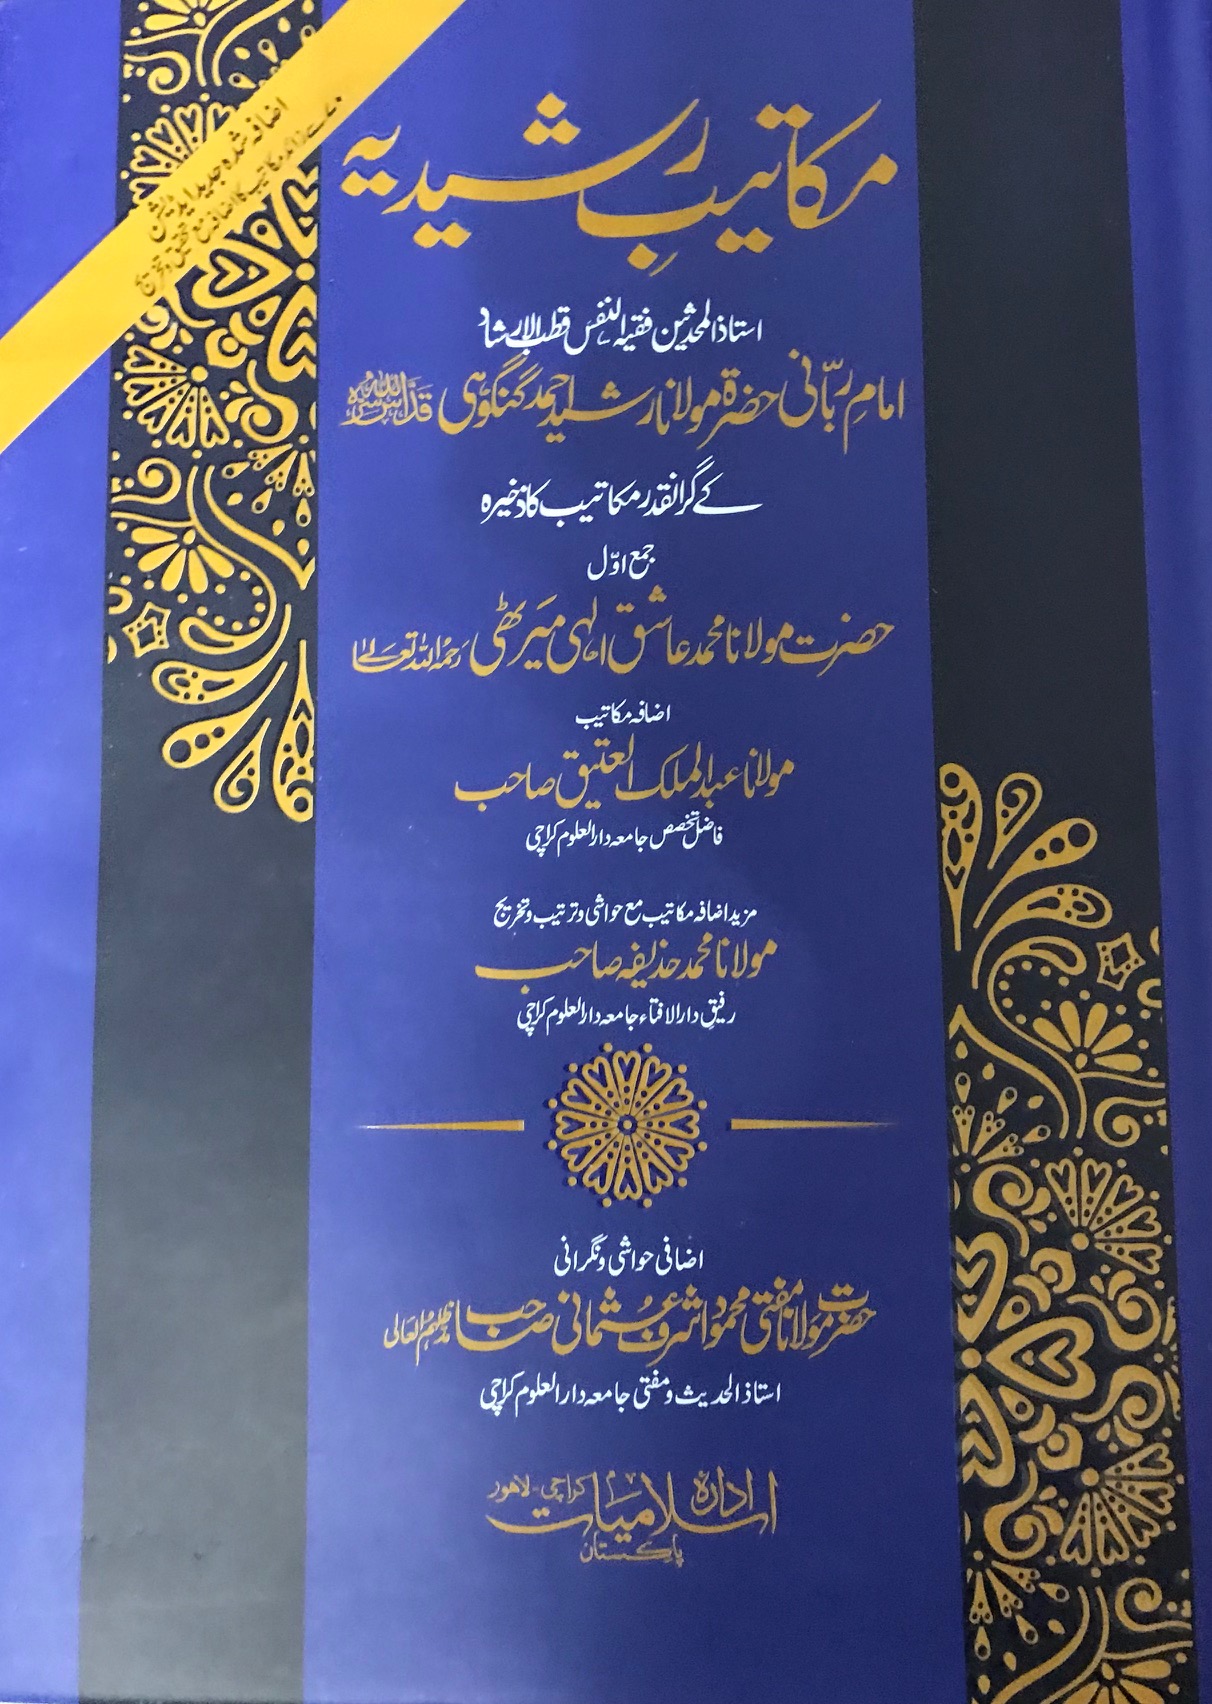 اضافہ شدہ جدید ایڈیشن
سے زائد مکاتیب کا اضافہ مع تحقیق و تخریج
مکاتیبِ رشیدیہ
استاذ المحدثین فقیہ النفس قطب الارشاد
امامِ ربّانی حضرۃ مولانا رشید احمد گنگوہی قدس اللہ سرہ
کے گرانقدر مکاتیب کا ذخیرہ
جمع اوّل
حضرت مولانا محمد عاشق الٰہی میرٹھی رحمۃ اللہ تعالیٰ
اضافہ مکاتیب
مولانا عبدالملک العتیق صاحب
فاضل تخصص جامعہ دارالعلوم کراچی
مزید اضافہ مکاتیب مع حواشی و ترتیب و تخریج
مولانا محمد حذیفہ صاحب
رفیق دارالافتاء جامعہ دارالعلوم کراچی
اضافی حواشی و نگرانی
حضرت مولانا مفتی محمود اشرف عثمانی صاحب مدظلہم العالی
استاذ الحدیث و مفتی جامعہ دارالعلوم کراچی
ادارہ اسلامیات کراچی-لاہور
پاکستان